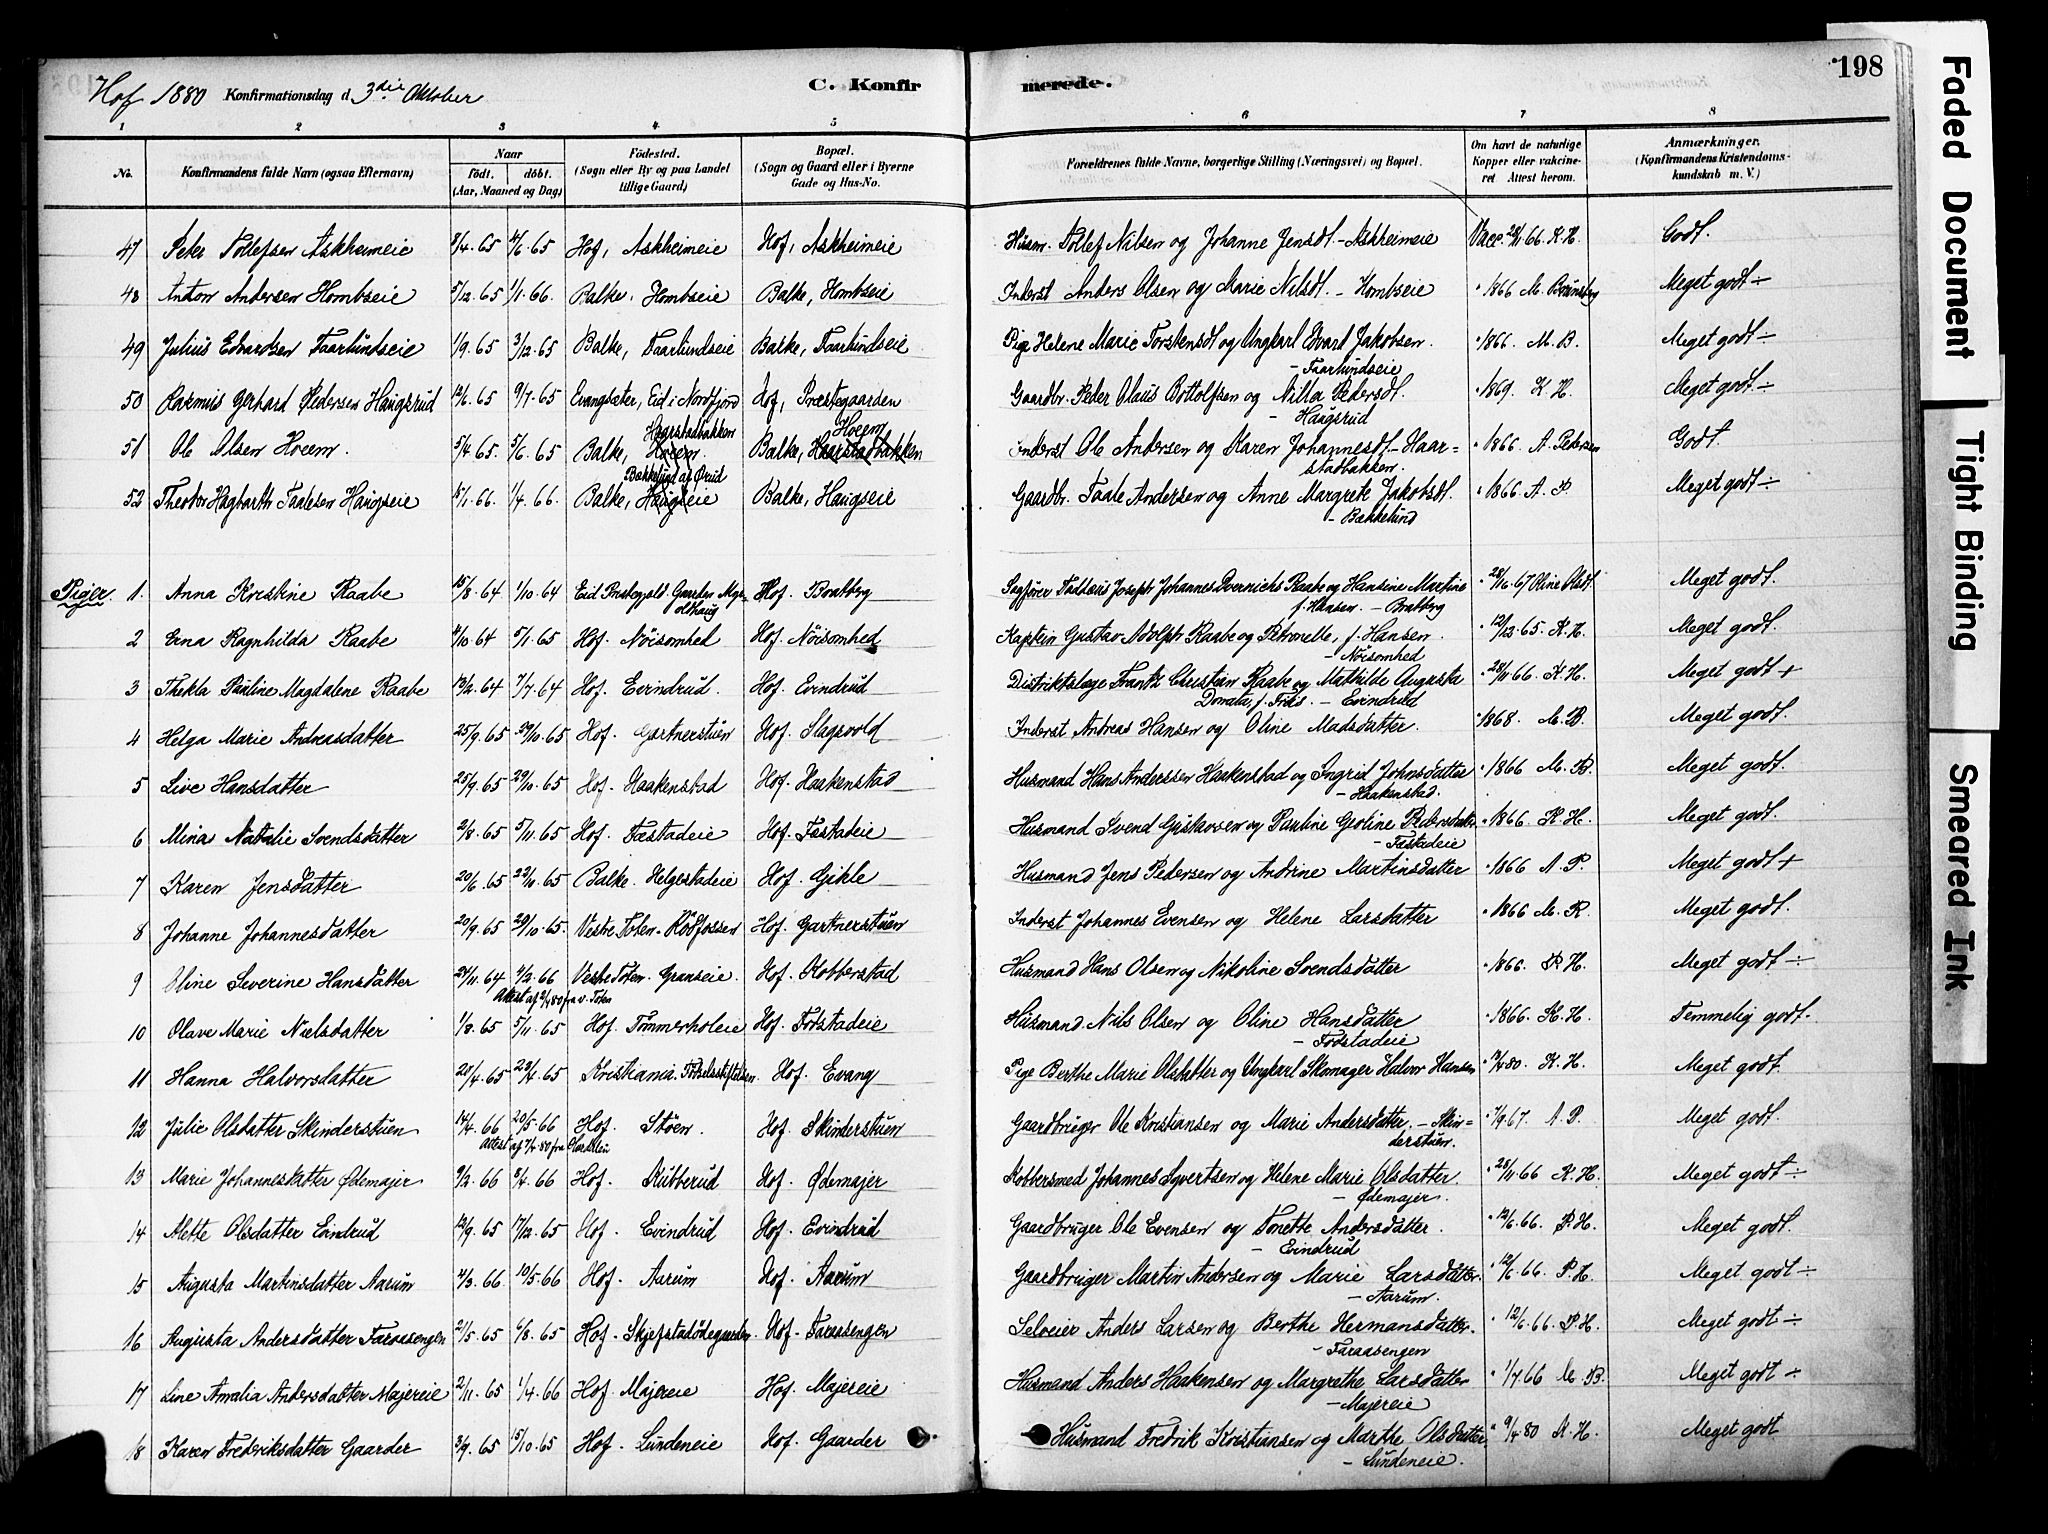 198
Hof 1880 Konfirmationsdag d. 3die Oktober C. Konfirmerede.
1 2 3 4 5 6 7 8
No. Konfirmandens fulde Navn (ogsaa Efternavn) Naar födt. döbt. (Aar, Maaned og Dag) Födested. (Sogn eller By og paa Landet tillige Gaard) Bopæl. (Sogn og Gaard eller i Byerne Gade og Hus-No. Forældrenes fulde Navne, borgerlige Stilling (Næringsvei) og Bopæl. Om havt de naturlige Kopper eller vakcineret Attest herom. Anmærkninger. (Konfirmandens Kristendomskundskab m. V.)
47 Peter Tollefsen Askheimeie 8/4. 65 4/6. 65 Hof, Askheimeie Hof, Askheimeie Husm. Tollef Nilsen og Johanne Jensdt. - Askheimeie Vacc. 28/11 66. K. H. Godt.
48 Anton Andersen Hombseie 5/12. 65 1/1. 66. Balke, Hombseie Balke, Hombseie Inderst Anders Olsen og Marie Nilsdt. - Hombseie " 1866 M. Meget godt ÷
49 Julius Edvardsen Faarlundseie 1/9. 65 3/12. 65 Balke, Faarlundseie Balke, Faarlundseie Pige Helene Marie Torstensdt og Ungkarl Edvart Jakobsen. - Faarlundseie " 1866. M. B. Meget godt ÷
50 Rasmus Gerhard Pedersen Haugsrud 12/6. 65 9/7. 65 Evangsæter, Eid i Nordfjord Hof, Præstegaarden Gaardbr. Peder Olaus Bottolfsen og Nilla Pedersdt. - Haugsrud " 1869. K. H. Meget godt ÷
51 Ole Olsen Hveem. 5/4 65. 5/6. 65 Balke, Hveem. Haarstadbakken Balke, Haarstadbakken Hveem Inderst Ole Andersen og Karen Johannesdt. - Haarstadbakken. " 1866 A. Pedersen Godt.
52 Theodor Hagbarth Taalesen Haugseie 8/1. 66. 1/4. 66. Balke, Haugseie Bækkelund af Ørud Balke, Haugseie Gaardbr. Taale Andersen og Anne Margrete Jakobsdt. - Bækkelund " 1866 A. P. Meget godt ÷
Piger. 1. Anna Kristine Raabe 15/8. 64 1/10. 64 Eid Præstegjeld. Hof. Braaberg Sagförer Taddæus Joseph Johannes Raabe og Hansine Martine f. Hansen. - Braaberg " 28/10. 67 Oline Olsdt Meget godt.
2 Erna Ragnhilda Raabe 4/10 64 5/1. 65 Hof. Nöisomhed Hof. Nöisomhed Kaptein Gustav Adolph Raabe og Petronelle, f. Hansen. - Nöisomhed " 12/12. 65. K. H. Meget godt.
3 Thekla Pauline Magdalene Raabe 13/2. 64 7/7. 64 Hof. Evindrud. Hof. Evindrud Distriktslæge Frantz Christian Raabe og Mathilde Augusta Donata, f. Friis. - Evindrud " 28/11. 66. K. H. Meget godt +
4 Helga Marie Andreasdatter 25/9. 65 29/10. 65 Hof. Gartnerstuen Hof. Slagsvold Inderst Andreas Hansen og Oline Madsdatter. " 1868. M. B. Meget godt.
5 Live Hansdatter 25/9. 65 29/10. 65 Hof. Haakenstad Hof. Haakenstad Husmand Hans Anderssen Haakenstad og Ingrid Johnsdatter - Haakenstad. " 1866 M. B. Meget godt.
6 Mina Natalie Svendsdatter 2/8. 65 5/11. 65 Hof. Fæstadeie Hof. Fæstadeie Husmand Svend Gustavsen og Pauline Geoline Pedersdatter - Fæstadeie " 1866. K. H. Meget godt.
7 Karen Jensdatter 20/6. 65 22/10. 65 Balke. Helgestadeie Hof. Gikle Husmand Jens Pedersen og Andrine Martinsdatter " 1866 A. P. Meget godt +
8 Johanne Johannesdatter 20/9. 65 29/10. 65. Vestre Toten - Rödfossen Hof. Gartnerstuen Inderst Johannes Evensen og Helene Larsdatter " 1866 M. R. Meget godt.
9 Oline Severine Hansdatter 24/11. 64 4/2. 66 Vestre Toten. Granseie. Hof. Kobberstad Husmand Hans Olsen og Nikoline Svendsdatter " 1866. P. H. Meget godt ÷
Attest af 2/4 80 fra v. Toten
10 Olave Marie Nielsdatter 1/8. 65 5/11. 65 Hof. Tömmerholeie Hof. Fodstadeie Husmand Nils Olsen og Oline Hansdatter - Fodstadeie " 1866. K. H. Temmelig godt.
11 Hanna Halvorsdatter 20/4. 65 23/4. 65 Kristiania. Födselsstiftelsen. Hof. Evang Pige Berthe Marie Olsdatter og Ungkarl Skomager Halvor Hansen " 12/4 80. K. H. Meget godt
12 Julie Olsdatter Skinderstuen 14/4. 66 20/5. 66 Hof. Stöen. Hof. Skinderstuen Gaardbruger Ole Kristiansen og Marie Andersdatter. - Skinderstuen. " 7/9. 67. A. P. Meget godt.
13 Marie Johannesdatter Ødemajer 9/2. 66 8/4. 66 Hof. Kubberud Hof. Ødemajer Kobbersmed Johannes Syvertsen og Helene Marie Olsdatter. - Ødemajer. " 28/11. 66 K. H. Meget godt ÷
14 Mette Olsdatter Evindrud 12/9. 65 17/12. 65 Hof. Evindrud Hof. Evindrud Gaardbruger Ole Evensen og Tonette Andersdatter. - Evindrud " 12/6. 66. P. H. Meget godt.
15 Augusta Martinsdatter Aarum 4/3. 66 10/5. 66 Hof. Aarum Hof. Aarum Gaardbruger Martin Andersen og Marie Larsdatter. - Aarum. " 12/6. 66. P. H. Meget godt ÷
16 Augusta Andersdatter Faraasengen 2/5. 65 6/8. 65 Hof. Skjefstadödegaarden. Hof. Faraasengen Selveier Anders Larsen og Berthe Hermansdatter. - Faraasengen " 12/6. 66. P. H. Meget godt ÷
17 Line Amalia Andersdatter Majereie 2/11. 65 1/4. 66 Hof. Majereie Hof. Majereie Husmand Anders Haakensen og Margrethe Larsdatter - Majereie " 1/7. 66 M. B. Meget godt ÷
18 Karen Frederiksdatter Gaarder 3/9. 65 15/10. 65 Hof. Lundeneie Hof. Gaarder Husmand Fredrik Kristiansen og Marthe Olsdatter - Lundeneie. " 9/4 80 K. H. Meget godt
Faded Document
Tight Binding
Smeared Ink